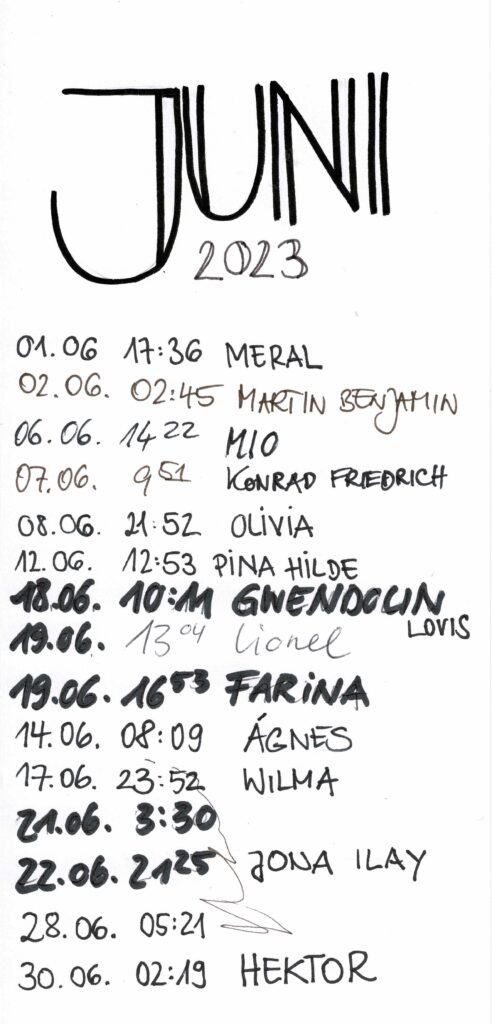 JUNI
2023
01.06 17:36 MERAL
02.06. 02:45 MARTIN BENJAMIN
06.06. 14 22 MIO
07.06. 9 51 KONRAD FRIEDRICH
08.06. 21:52 OLIVIA
12.06. 12:53 PINA HILDE
18.06. 10:11 GWENDOLIN
LOVIS
19.06. 13 04 Lionel
19.06. 16 53 FARINA
14.06. 08:09 ÁGNES
17.06. 23:52 WILMA
21.06. 3:30
22.06. 21 25 JONA ILAY
28.06. 05:21
30.06. 02:19 HEKTOR